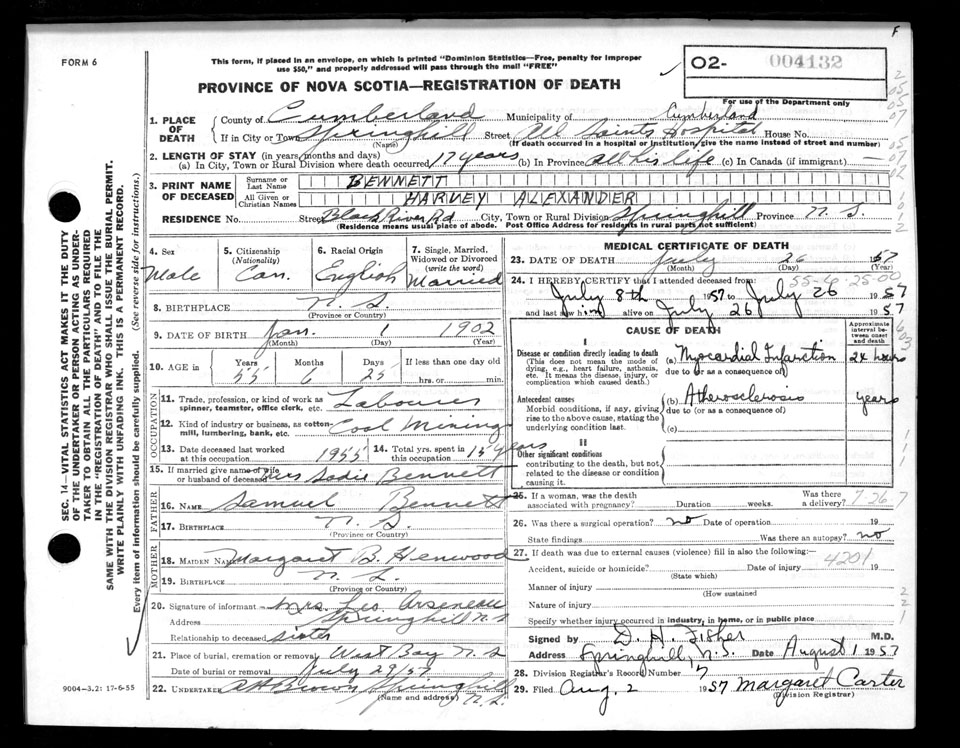 F
FORM 6
This form, if placed in an envelope, on which is printed "Dominion Statistics—Free, penalty for improper
use $50," and properly addressed will pass through the mail "FREE"
O2- 004132
For use of the Department only
PROVINCE OF NOVA SCOTIA—REGISTRATION OF DEATH
1. PLACE OF DEATH
County of Cumberland Municipality of Cumberland
If in City or Town Springhill Street All Saints Hospital House No.
(Name) (If death occurred in a hospital or institution, give the name instead of street and number)
2. LENGTH OF STAY (in years, months and days)
(a) In City, Town or Rural Division where death occurred 17 years (b) In Province all his life (c) In Canada (if immigrant) —
3. PRINT NAME OF DECEASED
Surname or Last Name BENNETT
All Given or Christian Names HARVEY ALEXANDER
RESIDENCE No. Street Black River Rd City, Town or Rural Division Springhill Province N. S.
(Residence means usual place of abode. Post Office Address for residents in rural parts not sufficient)
4. Sex Male
5. Citizenship (Nationality) Can.
6. Racial Origin English
7. Single, Married, Widowed or Divorced (write the word) Married
8. BIRTHPLACE N. S.
(Province or Country)
9. DATE OF BIRTH Jan. 1 1902
(Month) (Day) (Year)
10. AGE in Years 55 Months 6 Days 25 If less than one day old hrs. or min.
OCCUPATION
11. Trade, profession, or kind of work as spinner, teamster, office clerk, etc. Labourer
12. Kind of industry or business, as cotton-mill, lumbering, bank, etc. Coal Mining
13. Date deceased last worked at this occupation 1955 14. Total yrs. spent in this occupation 15 years
15. If married give name of wife or husband of deceased Mrs Sadie Bennett
FATHER
16. NAME Samuel Bennett
17. BIRTHPLACE N. S.
(Province or Country)
MOTHER
18. MAIDEN NAME Margaret B. Henwood
19. BIRTHPLACE N. S.
(Province or Country)
20. Signature of informant Mrs. Leo Arseneau
Address Springhill N. S
Relationship to deceased sister
21. Place of burial, cremation or removal West Bay N. S
Date of burial or removal July 29/57
22. UNDERTAKER A H Brown Springhill N. S.
(Name and address)
MEDICAL CERTIFICATE OF DEATH
23. DATE OF DEATH July 26 1957
(Month) (Day) (Year)
55-6-25-00
24. I HEREBY CERTIFY that I attended deceased from:
July 8th 1957 to July 26 1957
and last saw him alive on July 26 1957
CAUSE OF DEATH
Approximate interval between onset and death
I
Disease or condition directly leading to death
(This does not mean the mode of dying, e.g., heart failure, asthenia, etc. It means the disease, injury, or complication which caused death.)
(a) Myocardial Infarction 24 hours
due to (or as a consequence of)
Antecedent causes
Morbid conditions, if any, giving rise to the above cause, stating the underlying condition last.
(b) Atherosclerosis years
due to (or as a consequence of)
(c)
II
Other significant conditions
contributing to the death, but not related to the disease or condition causing it.
25. If a woman, was the death associated with pregnancy? Duration weeks. Was there a delivery?
7-26-7
26. Was there a surgical operation? no Date of operation 19
State findings Was there an autopsy? no
27. If death was due to external causes (violence) fill in also the following:—
4201
Accident, suicide or homicide? Date of injury 19
(State which)
Manner of injury
(How sustained
Nature of injury
Specify whether injury occurred in industry, in home, or in public place
Signed by D. H. Fisher M.D.
Address Springhill, N.S. Date August 1 1957
28. Division Registrar's Record Number 7
29. Filed Aug. 2 1957 Margaret Carter
(Division Registrar)
9004—3.2: 17-6-55
SEC. 14—VITAL STATISTICS ACT MAKES IT THE DUTY
OF THE UNDERTAKER OR PERSON ACTING AS UNDER-
TAKER TO OBTAIN ALL THE PARTICULARS REQUIRED
IN THE "REGISTRATION OF DEATH" AND TO FILE THE
SAME WITH THE DIVISION REGISTRAR WHO SHALL ISSUE THE BURIAL PERMIT.
WRITE PLAINLY WITH UNFADING INK. THIS IS A PERMANENT RECORD.
Every item of information should be carefully supplied. (See reverse side for instructions.)